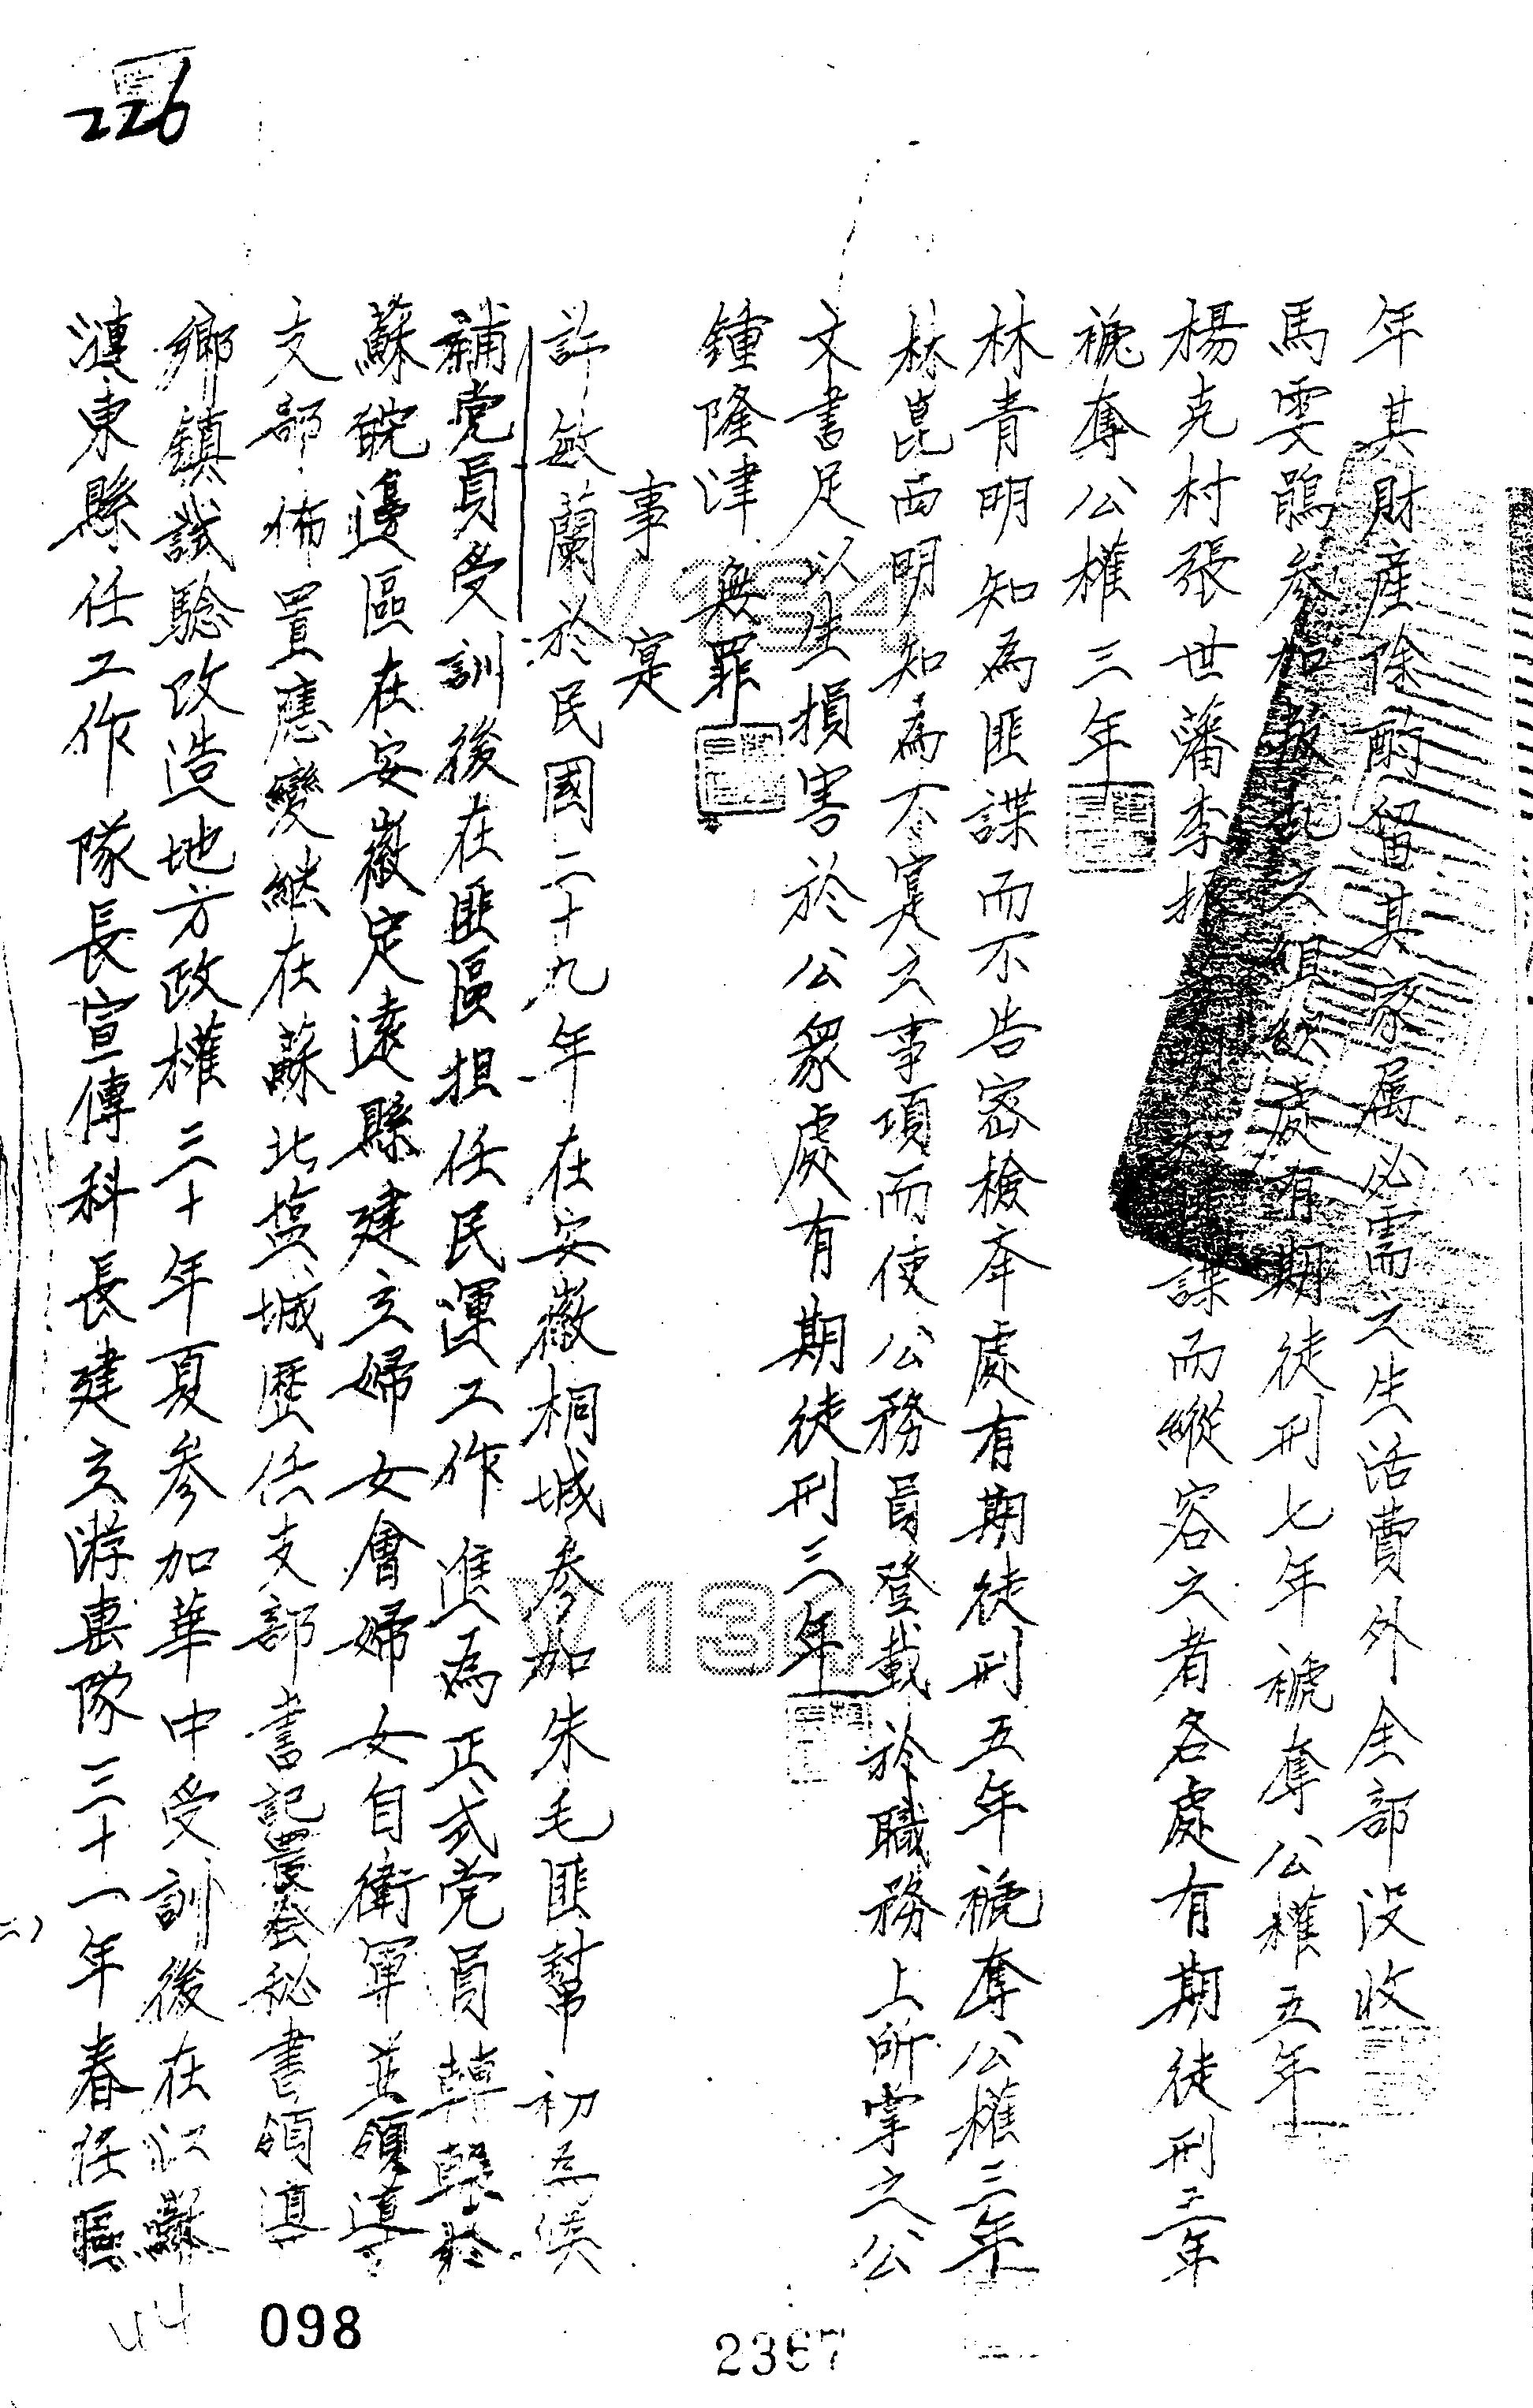 226
年其財產除酌留其家属必需之生活費外全部没收
馬雯鵑參加叛乱之組織處有期徒刑七年褫奪公權五年
楊克村張世藩李振 明知匪諜而縱容之者各處有期徒刑三年
褫奪公權三年
林青明知為匪諜而不告密檢举處有期徒刑五年褫奪公權三年
林崑西明知為不寔之事項而使公務員登載於職務上所掌之公
文書足以生損害於公眾處有期徒刑三年
鍾隆津無罪
事寔
許敏蘭於民國二十九年在安徽桐城參加朱毛匪幫初為候
補党員受訓後在匪區担任民運工作進為正式党員轉 於
蘇皖邊區在安徽定遠縣建立婦女會婦女自衛軍並領導
支部佈置應變継在蘇北塩城歷任支部書記農会秘書領導
鄉鎮試驗改造地方政權三十年夏參加華中受訓後在江蘇
漣東縣任工作隊長宣傳科長建立游击隊三十一年春任區
W134
W134
二)
44
098
2367